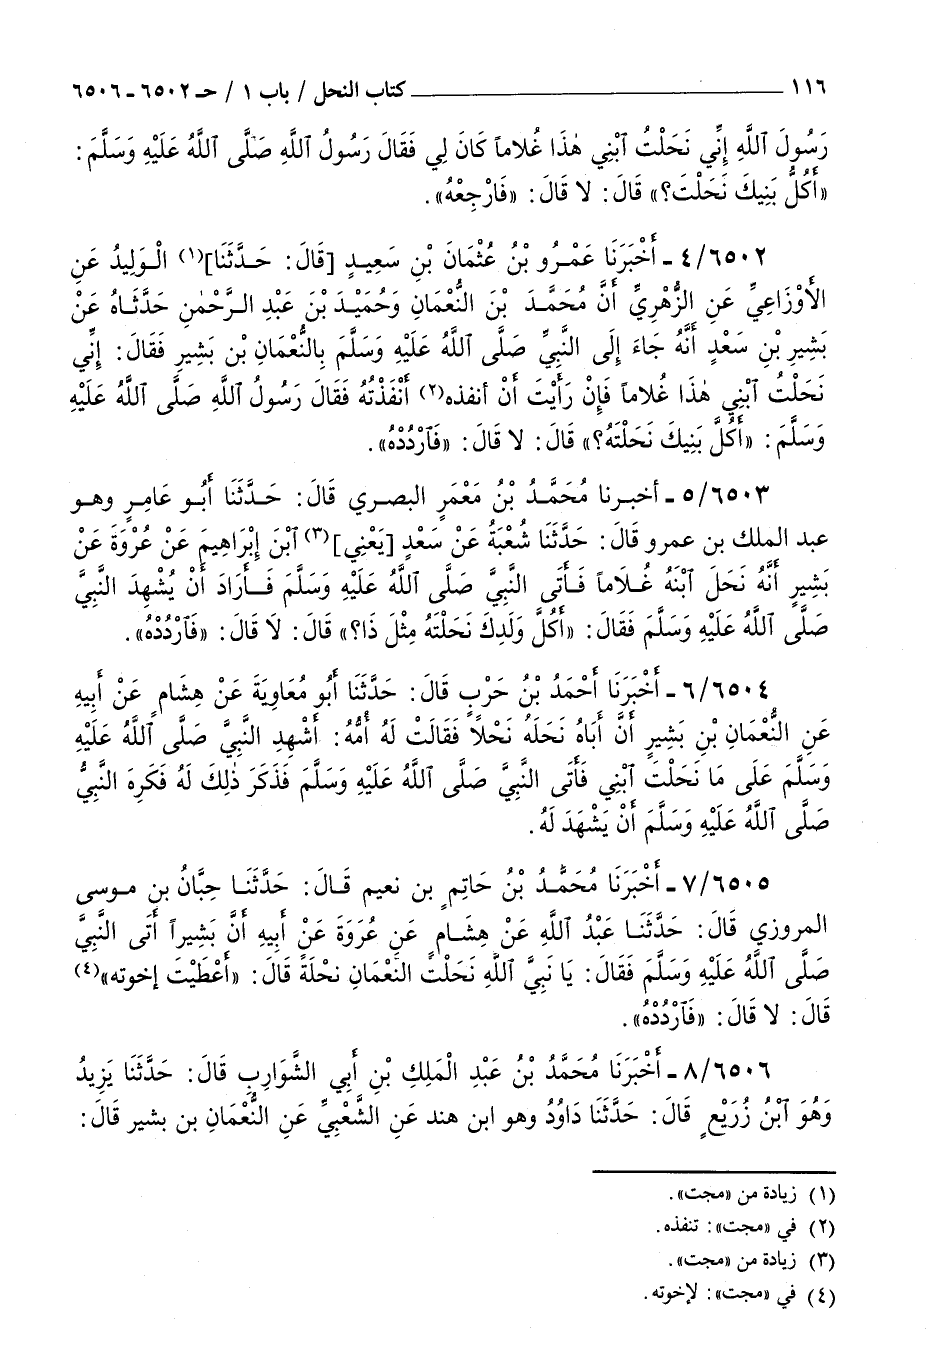 ١١٦ ــــــــــــــــــــ كتاب النحل / باب ١ / حـ ٦٥٠٢ - ٦٥٠٦
رَسُولَ ٱللَّهِ إِنِّي نَحَلْتُ ٱبْنِي هٰذَا غُلاماً كَانَ لِي فَقَالَ رَسُولُ ٱللَّهِ صَلَّى ٱللَّهُ عَلَيْهِ وَسَلَّمَ :
«أَكُلَّ بَنِيكَ نَحَلْتَ؟» قَالَ: لا قَالَ: «فَارْجِعْهُ».
٤/٦٥٠٢ ـ أَخْبَرَنَا عَمْرو بْنُ عُثْمَانَ بْنِ سَعِيدٍ [قَالَ: حَدَّثَنَا](١) الْوَلِيدُ عَنِ
الأَوْزَاعِيِّ عَنِ الزُّهْرِيِّ أَنَّ مُحَمَّدَ بْنَ النُّعْمَانِ وَحُمَيْدَ بْنَ عَبْدِ الرَّحْمٰنِ حَدَّثَاهُ عَنْ
بَشِيرِ بْنِ سَعْدٍ أَنَّهُ جَاءَ إِلَى النَّبِيِّ صَلَّى ٱللَّهُ عَلَيْهِ وَسَلَّمَ بِالنُّعْمَانِ بْنِ بَشِيرٍ فَقَالَ: إِنِّي
نَحَلْتُ ٱبْنِي هٰذَا غُلاماً فَإِنْ رَأَيْتَ أَنْ أنفذه(٢) أَنْفَذْتُهُ فَقَالَ رَسُولُ ٱللَّهِ صَلَّى ٱللَّهُ عَلَيْهِ
وَسَلَّمَ: «أَكُلَّ بَنِيكَ نَحَلْتَهُ؟» قَالَ: لا قَالَ: «فَٱرْدُدْهُ».
٥/٦٥٠٣ ـ أخبرنا مُحَمَّدُ بْنُ مَعْمَرٍ البصري قَالَ: حَدَّثَنَا أَبُو عَامِرٍ وهو
عبد الملك بن عمرو قَالَ: حَدَّثَنَا شُعْبَةُ عَنْ سَعْدٍ [يَعْنِي](٣) ٱبْنَ إِبْرَاهِيمَ عَنْ عُرْوَةَ عَنْ
بَشِيرٍ أَنَّهُ نَحَلَ ٱبْنَهُ غُلَاماً فَأَتَى النَّبِيَّ صَلَّى ٱللَّهُ عَلَيْهِ وَسَلَّمَ فَأَرَادَ أَنْ يُشْهِدَ النَّبِيَّ
صَلَّى ٱللَّهُ عَلَيْهِ وَسَلَّمَ فَقَالَ: «أَكُلَّ وَلَدِكَ نَحَلْتَهُ مِثْلَ ذَا؟» قَالَ: لَا قَالَ: «فَٱرْدُدْهُ».
٦/٦٥٠٤ ـ أَخْبَرَنَا أَحْمَدُ بْنُ حَرْبٍ قَالَ: حَدَّثَنَا أَبُو مُعَاوِيَةَ عَنْ هِشَامٍ عَنْ أَبِيهِ
عَنِ النُّعْمَانِ بْنِ بَشِيرٍ أَنَّ أَبَاهُ نَحَلَهُ نَحْلاً فَقَالَتْ لَهُ أُمُّهُ: أَشْهِدِ النَّبِيَّ صَلَّى ٱللَّهُ عَلَيْهِ
وَسَلَّمَ عَلَى مَا نَحَلْتَ ٱبْنِي فَأَتَى النَّبِيَّ صَلَّى ٱللَّهُ عَلَيْهِ وَسَلَّمَ فَذَكَرَ ذٰلِكَ لَهُ فَكَرِهَ النَّبِيُّ
صَلَّى ٱللَّهُ عَلَيْهِ وَسَلَّمَ أَنْ يَشْهَدَ لَهُ.
٧/٦٥٠٥ ـ أَخْبَرَنَا مُحَمَّدُ بْنُ حَاتِمٍ بن نعيم قَالَ: حَدَّثَنَا حِبَّانُ بن موسى
المروزي قَالَ: حَدَّثَنَا عَبْدُ ٱللَّهِ عَنْ هِشَامٍ عَنِ عُرَوَةَ عَنْ أَبِيهِ أَنَّ بَشِيراً أَتَى النَّبِيَّ
صَلَّى ٱللَّهُ عَلَيْهِ وَسَلَّمَ فَقَالَ: يَا نَبِيَّ ٱللَّهِ نَحَلْتُ النُّعْمَانِ نحْلَةً قَالَ: «أَعْطَيْتَ إخوته»(٤)
قَالَ: لا قَالَ: «فَٱرْدُدْهُ».
٨/٦٥٠٦ ـ أَخْبَرَنَا مُحَمَّدُ بْنُ عَبْدِ الْمَلِكِ بْنِ أَبِي الشَّوَارِبِ قَالَ: حَدَّثَنَا يَزِيدُ
وَهُوَ ٱبْنُ زُرَيْعٍ قَالَ: حَدَّثَنَا دَاوُدُ وهو ابن هند عَنِ الشَّعْبِيِّ عَنِ النُّعْمَانِ بن بشير قَالَ:
(١) زيادة من «مجت».
(٢) في «مجت»: تنفذه.
(٣) زيادة من «مجت».
(٤) في «مجت»: لإخوته.